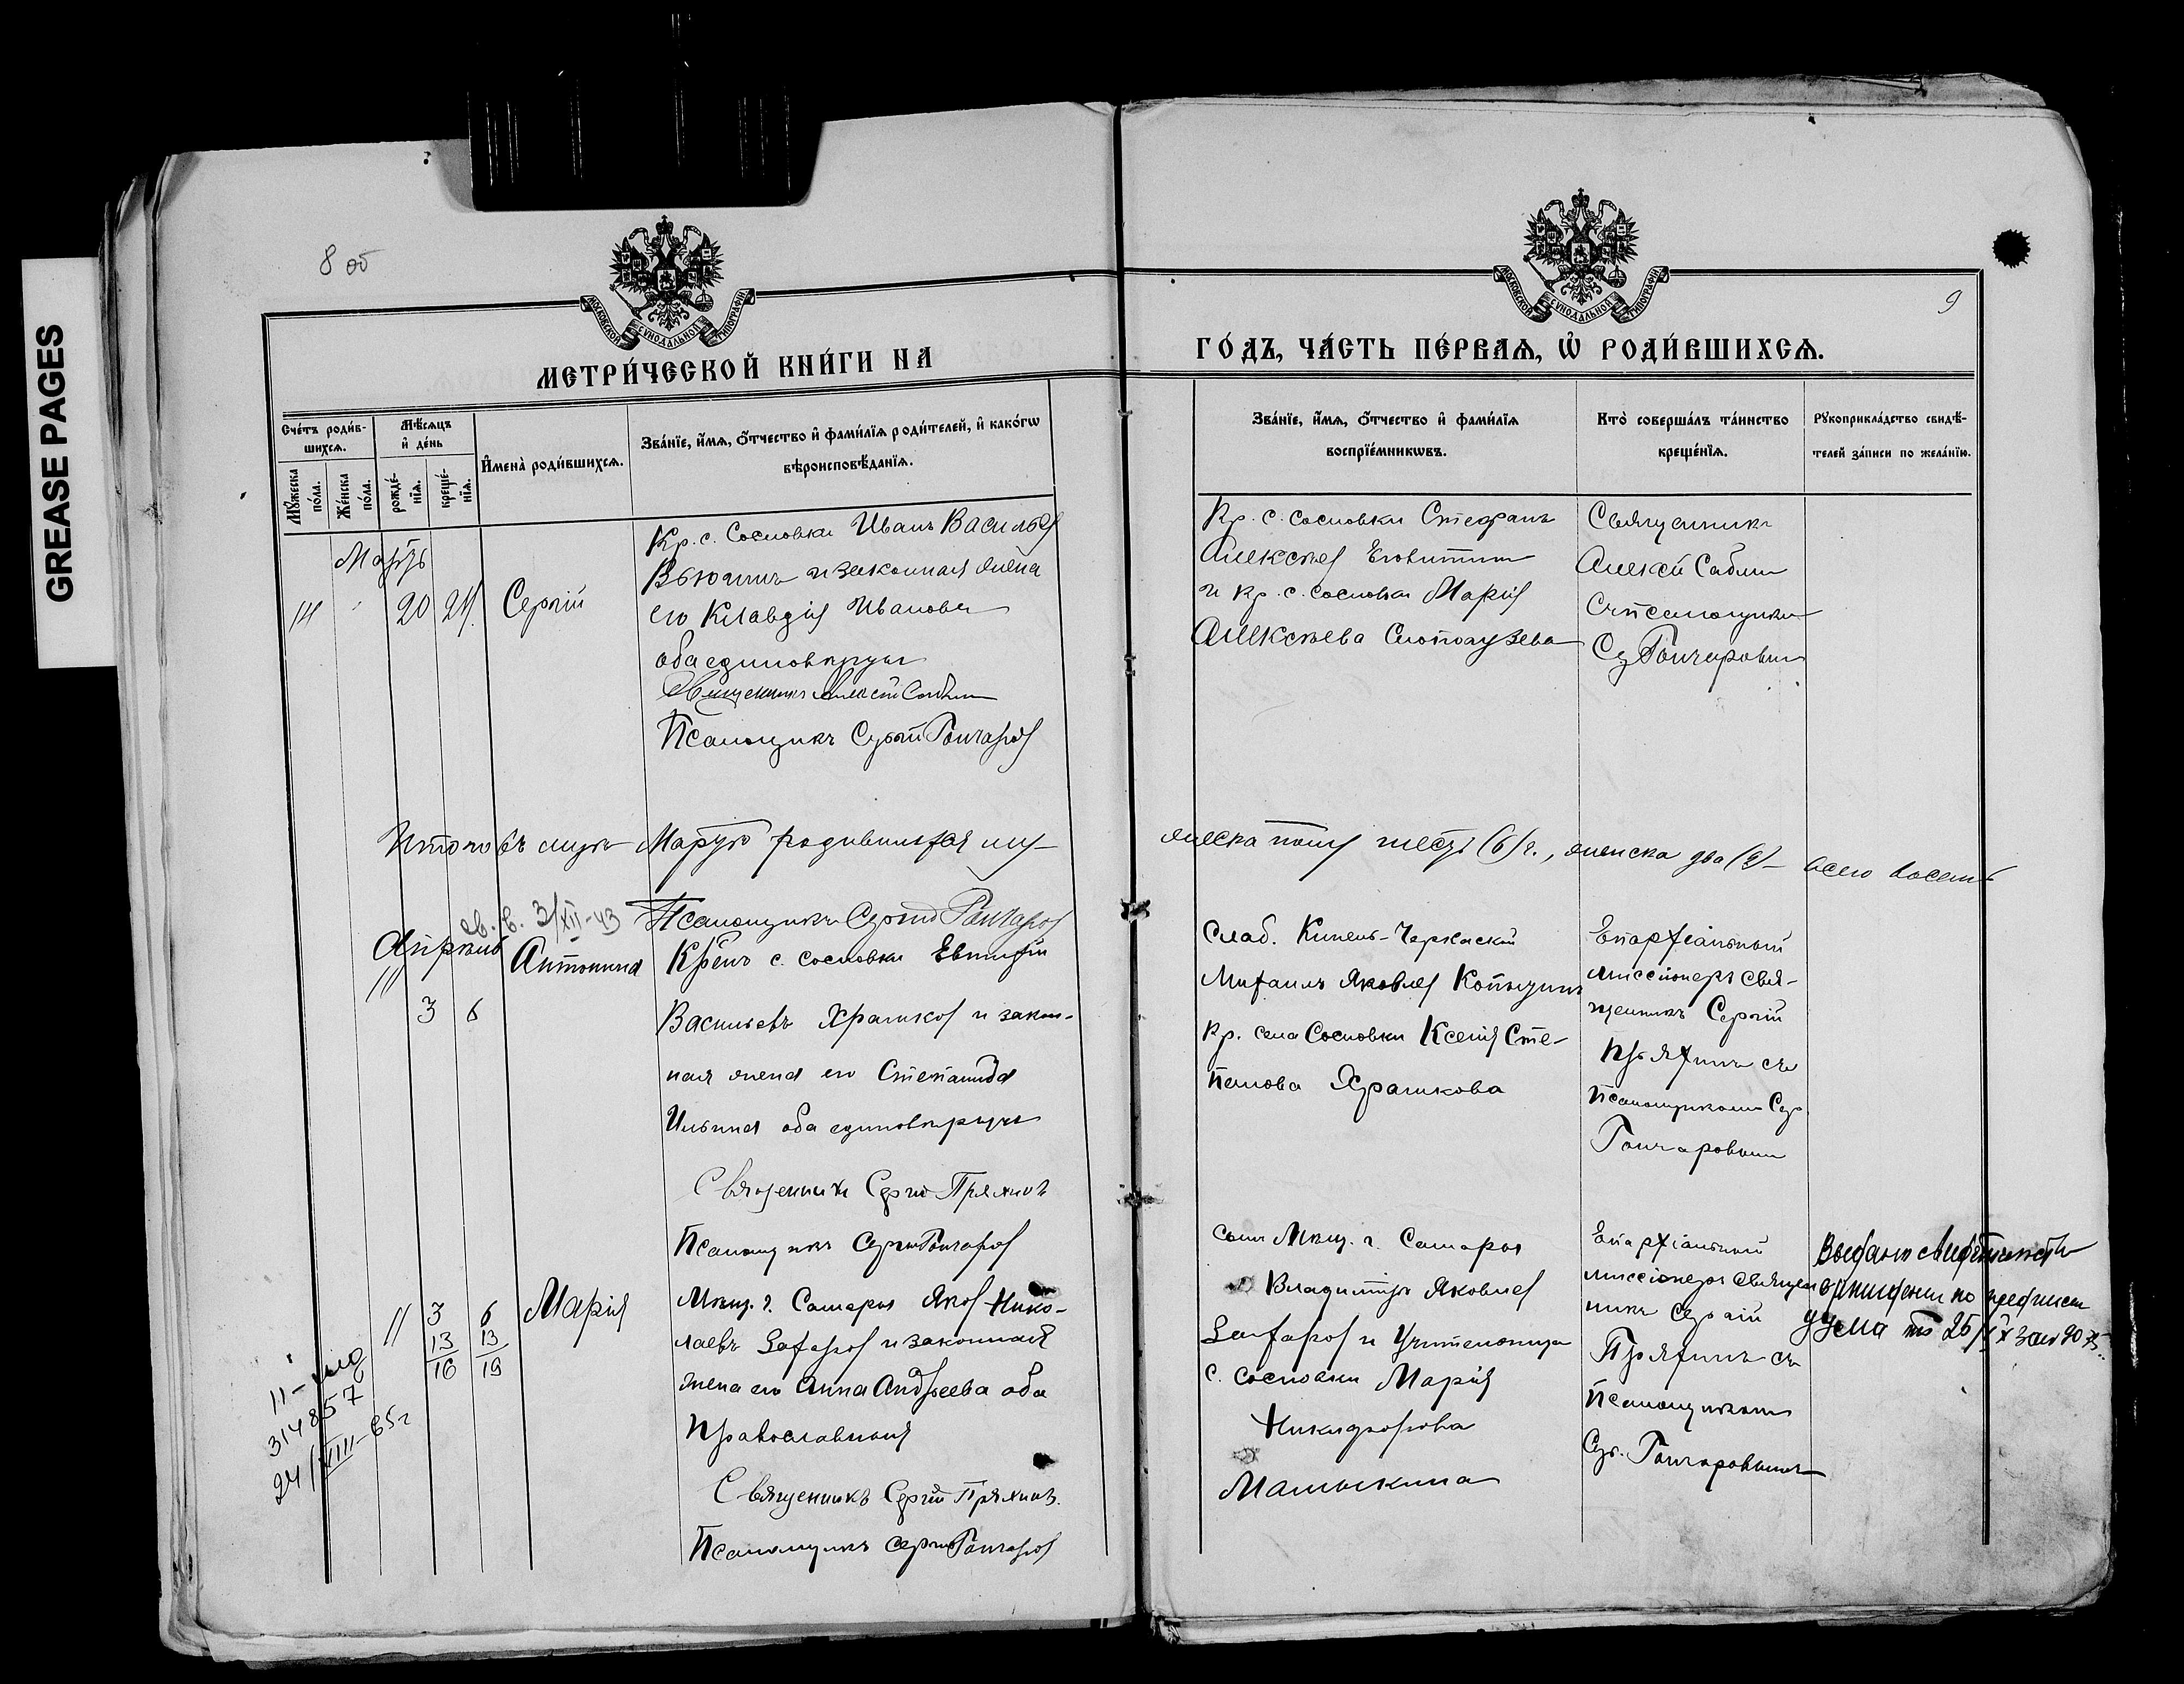 GREASE PAGES
8 об
МОСКОВСКОЙ СУНОДАЛЬНОЙ ТИПОГРАФІИ
МЕТРИ́ЧЕСКОЙ КНИ́ГИ НА
Сче́тъ роди́вшихсѧ.
Мꙋ́жеска по́ла.
Же́нска по́ла.
Мѣ́сѧцъ и҆ де́нь
рожде́нїѧ.
креще́нїѧ.
И҆мена̀ роди́вшихсѧ.
Зва́нїе, и҆́мѧ, ѻ҆́тчество и҆ фами́лїѧ роди́телей, и҆ како́гѡ
вѣроисповѣ́данїѧ.
Мартъ
14 20 24 Сергій
Кр. с. Сосновки Иванъ Василье
Вьюшинъ и законная жена
его Клавдія Иванова
оба единоверцы
Священникъ Алексій Саблин
Псаломщикъ Сергій Гончаров
Итого въ мужс Марте родившихся му-
св. в. 3/XII-43 Псаломщикъ Сергій Гончаров
Апрель
11 3 6 Антонина
Кр-нъ с. Сосновки Евтихій
Васильевъ Храмков и закон-
ная жена его Степанида
Ильина оба единоверцы
Священникъ Сергій Пряхинъ
Псаломщикъ Сергій Гончаров
11 3 6 Марія
13 13
16 19
Мещ. г. Самары Яков Нико-
лаевъ Захаров и законная
жена его Анна Андреева оба
Православныя
Священникъ Сергій Пряхинъ.
Псаломщикъ Сергій Гончаров
314857
24/VIII-65г
9
МОСКОВСКОЙ СУНОДАЛЬНОЙ ТИПОГРАФІИ
ГО́ДЪ, ЧА́СТЬ ПЕ́РВАѦ, Ѡ҆ РОДИ́ВШИХСѦ.
Зва́нїе, и҆́мѧ, ѻ҆́тчество и҆ фами́лїѧ
воспрїе́мникѡвъ.
Кто̀ соверша́лъ та́инство
креще́нїѧ.
Рꙋкоприкла́дство свидѣ́-
телей за́писи по жела́нїю.
Кр. с. Сосновки Стефанъ
Алексеев
и кр. с. Сосновки Марія
Алексеева
Священникъ
Алексей Саблин
съ псаломщик
Гончаровым
жеска полу шесть (6) ч., женска два (2) – всего восемь
Слаб. Кинель-Черкасской
Михаилъ Яковлев Копытин
Кр. села Сосновки Ксенія Сте-
панова Храмкова
Епархіальный
миссіонеръ свя-
щенникъ Сергій
Пряхинъ съ
псаломщиком Сер.
Гончаровым
сын Мещ. г. Самары
Владиміръ Яковлев
Захаров и Учительница
с. Сосновки Марія
Никифорова
Малыкина
Епархіальный
миссіонеръ Священ
никъ Сергій
Пряхинъ съ
псаломщиком
Сер. Гончаровымъ
Выдано свидетельств
о рождении по предписан